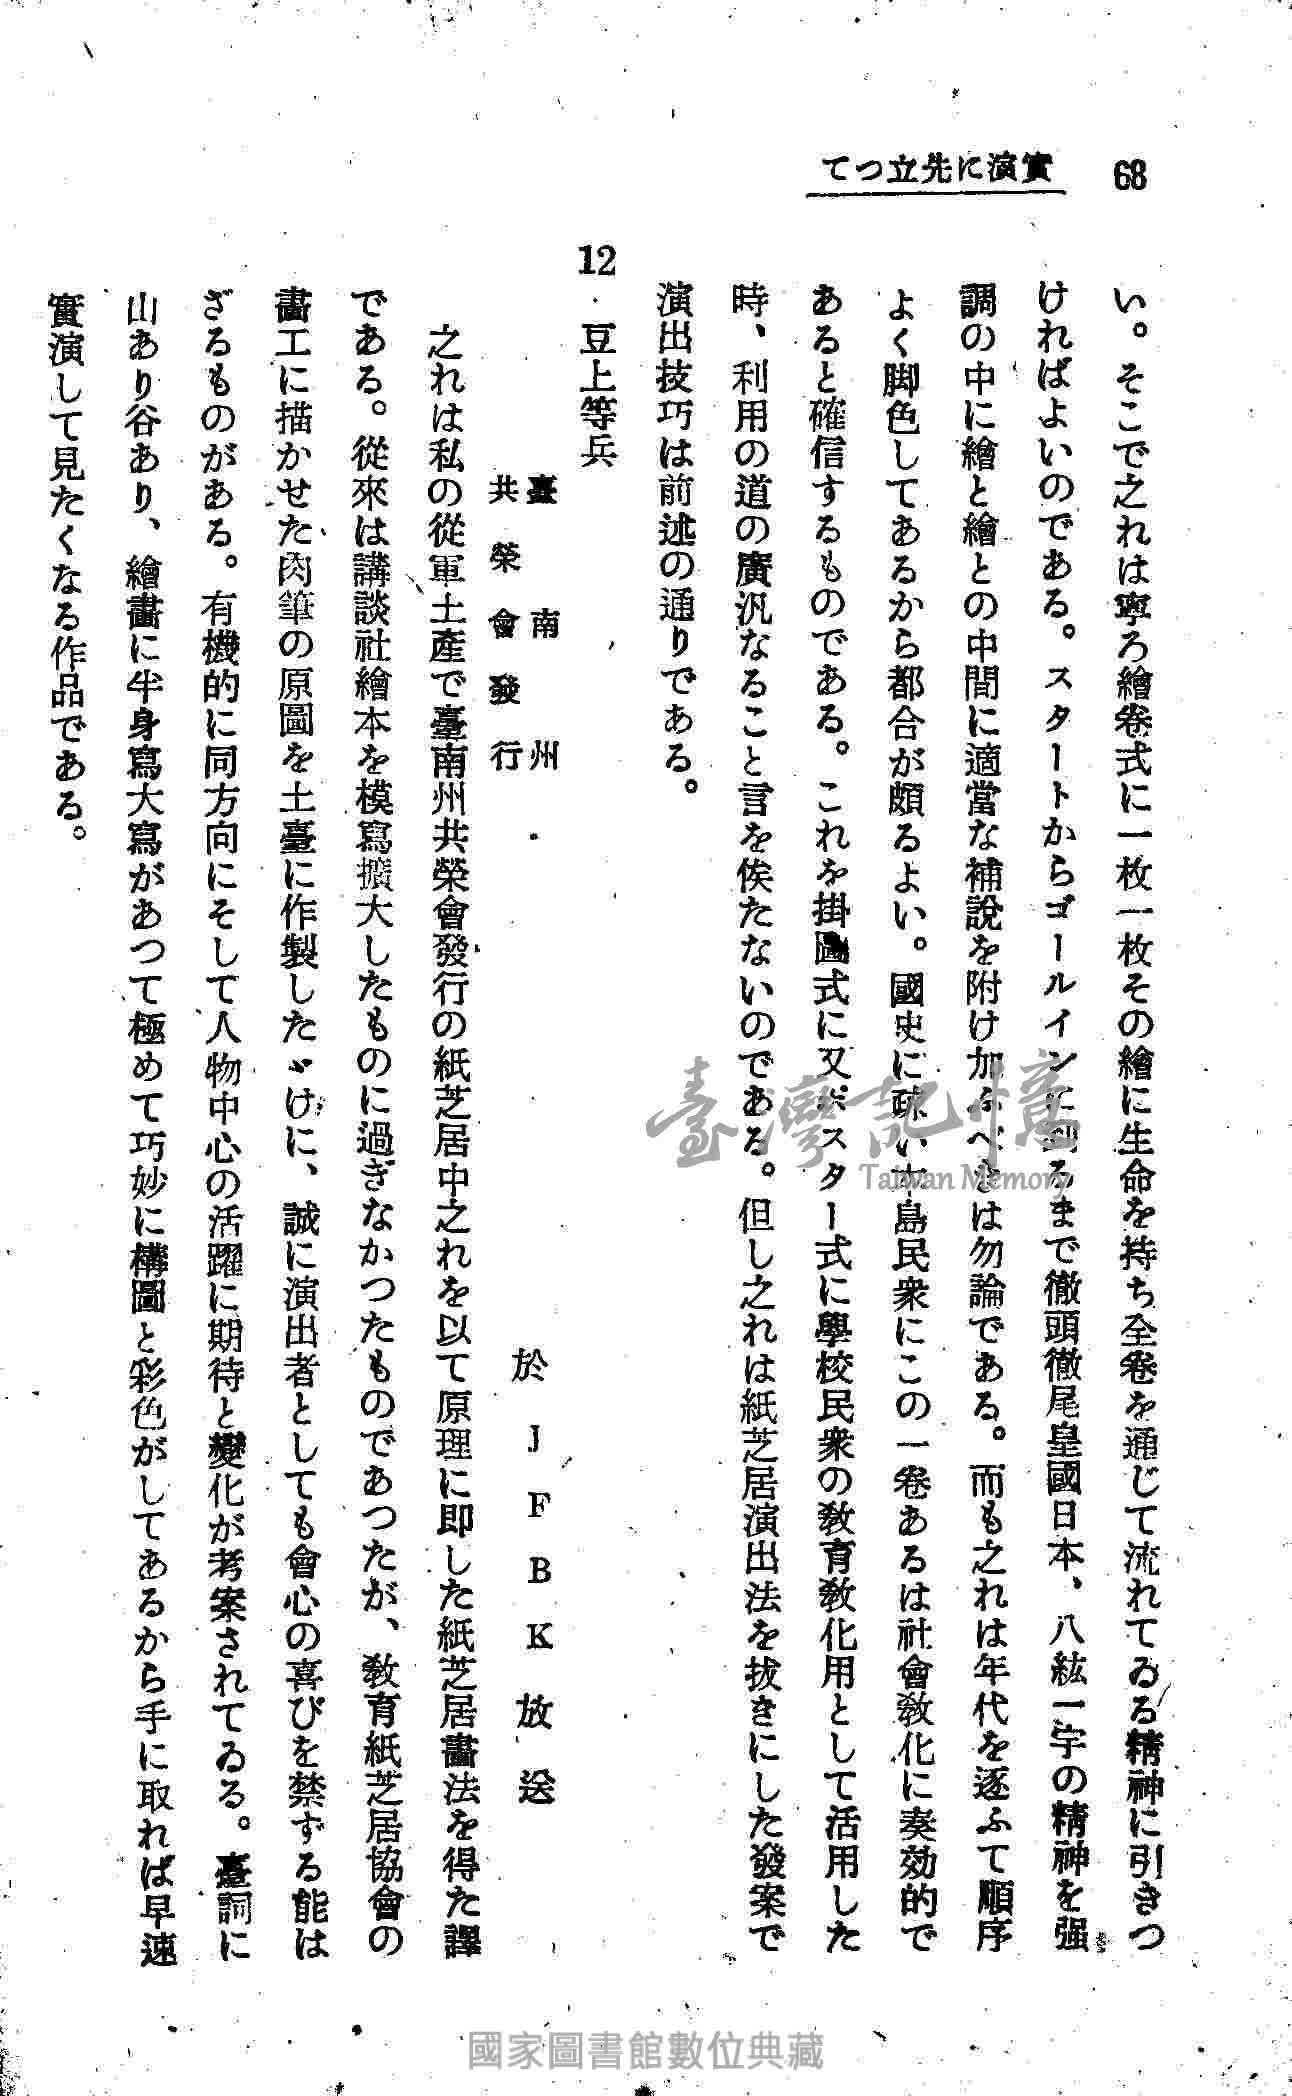 68
てつ立先に演實
い。そこで之れは寧ろ繪卷式に一枚一枚その繪に生命を持ち全卷を通じて流れてゐる精神に引きつ
ければよいのである。スタートからゴールインに到るまで徹頭徹尾皇國日本、八紘一宇の精神を强
調の中に繪と繪との中間に適當な補說を附け加ふべきは勿論である。而も之れは年代を逐ふて順序
よく脚色してあるから都合が頗るよい。國史に疎い本島民衆にこの一卷あるは社會敎化に奏効的で
あると確信するものである。これを掛圖式に又ポスター式に學校民衆の敎育敎化用として活用した
時、利用の道の廣汎なること言を俟たないのである。但し之れは紙芝居演出法を拔きにした發案で
演出技巧は前述の通りである。
12 豆上等兵
臺南州
共榮會發行
於JFBK放送
之れは私の從軍土產で臺南州共榮會發行の紙芝居中之れを以て原理に即した紙芝居畵法を得た譯
である。從來は講談社繪本を模寫擴大したものに過ぎなかつたものであつたが、敎育紙芝居協會の
畵工に描かせた肉筆の原圖を土臺に作製したゞけに、誠に演出者としても會心の喜びを禁ずる能は
ざるものがある。有機的に同方向にそして人物中心の活躍に期待と變化が考案されてゐる。臺詞に
山あり谷あり、繪畵に半身寫大寫があつて極めて巧妙に構圖と彩色がしてあるから手に取れば早速
實演して見たくなる作品である。
臺灣記憶
Taiwan Memory
國家圖書館數位典藏